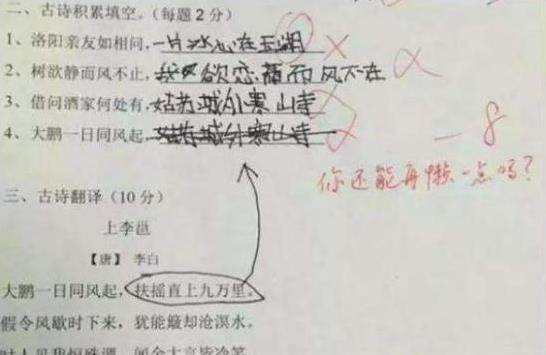 二、古诗积累填空。(每题2分)
1、洛阳亲友如相问,一片冰心在玉湖
2、树欲静而风不止,我欲恋福而风不在
3、借问酒家何处有,姑苏城外寒山寺
4、大鹏一日同风起,姑苏城外寒山寺
-8
你还能再懒一点吗?
三、古诗翻译(10分)
上李邕
【唐】 李白
大鹏一日同风起,扶摇直上九万里。
假令风歇时下来,犹能簸却沧溟水。
时人见我恒殊调,闻余大言皆冷笑